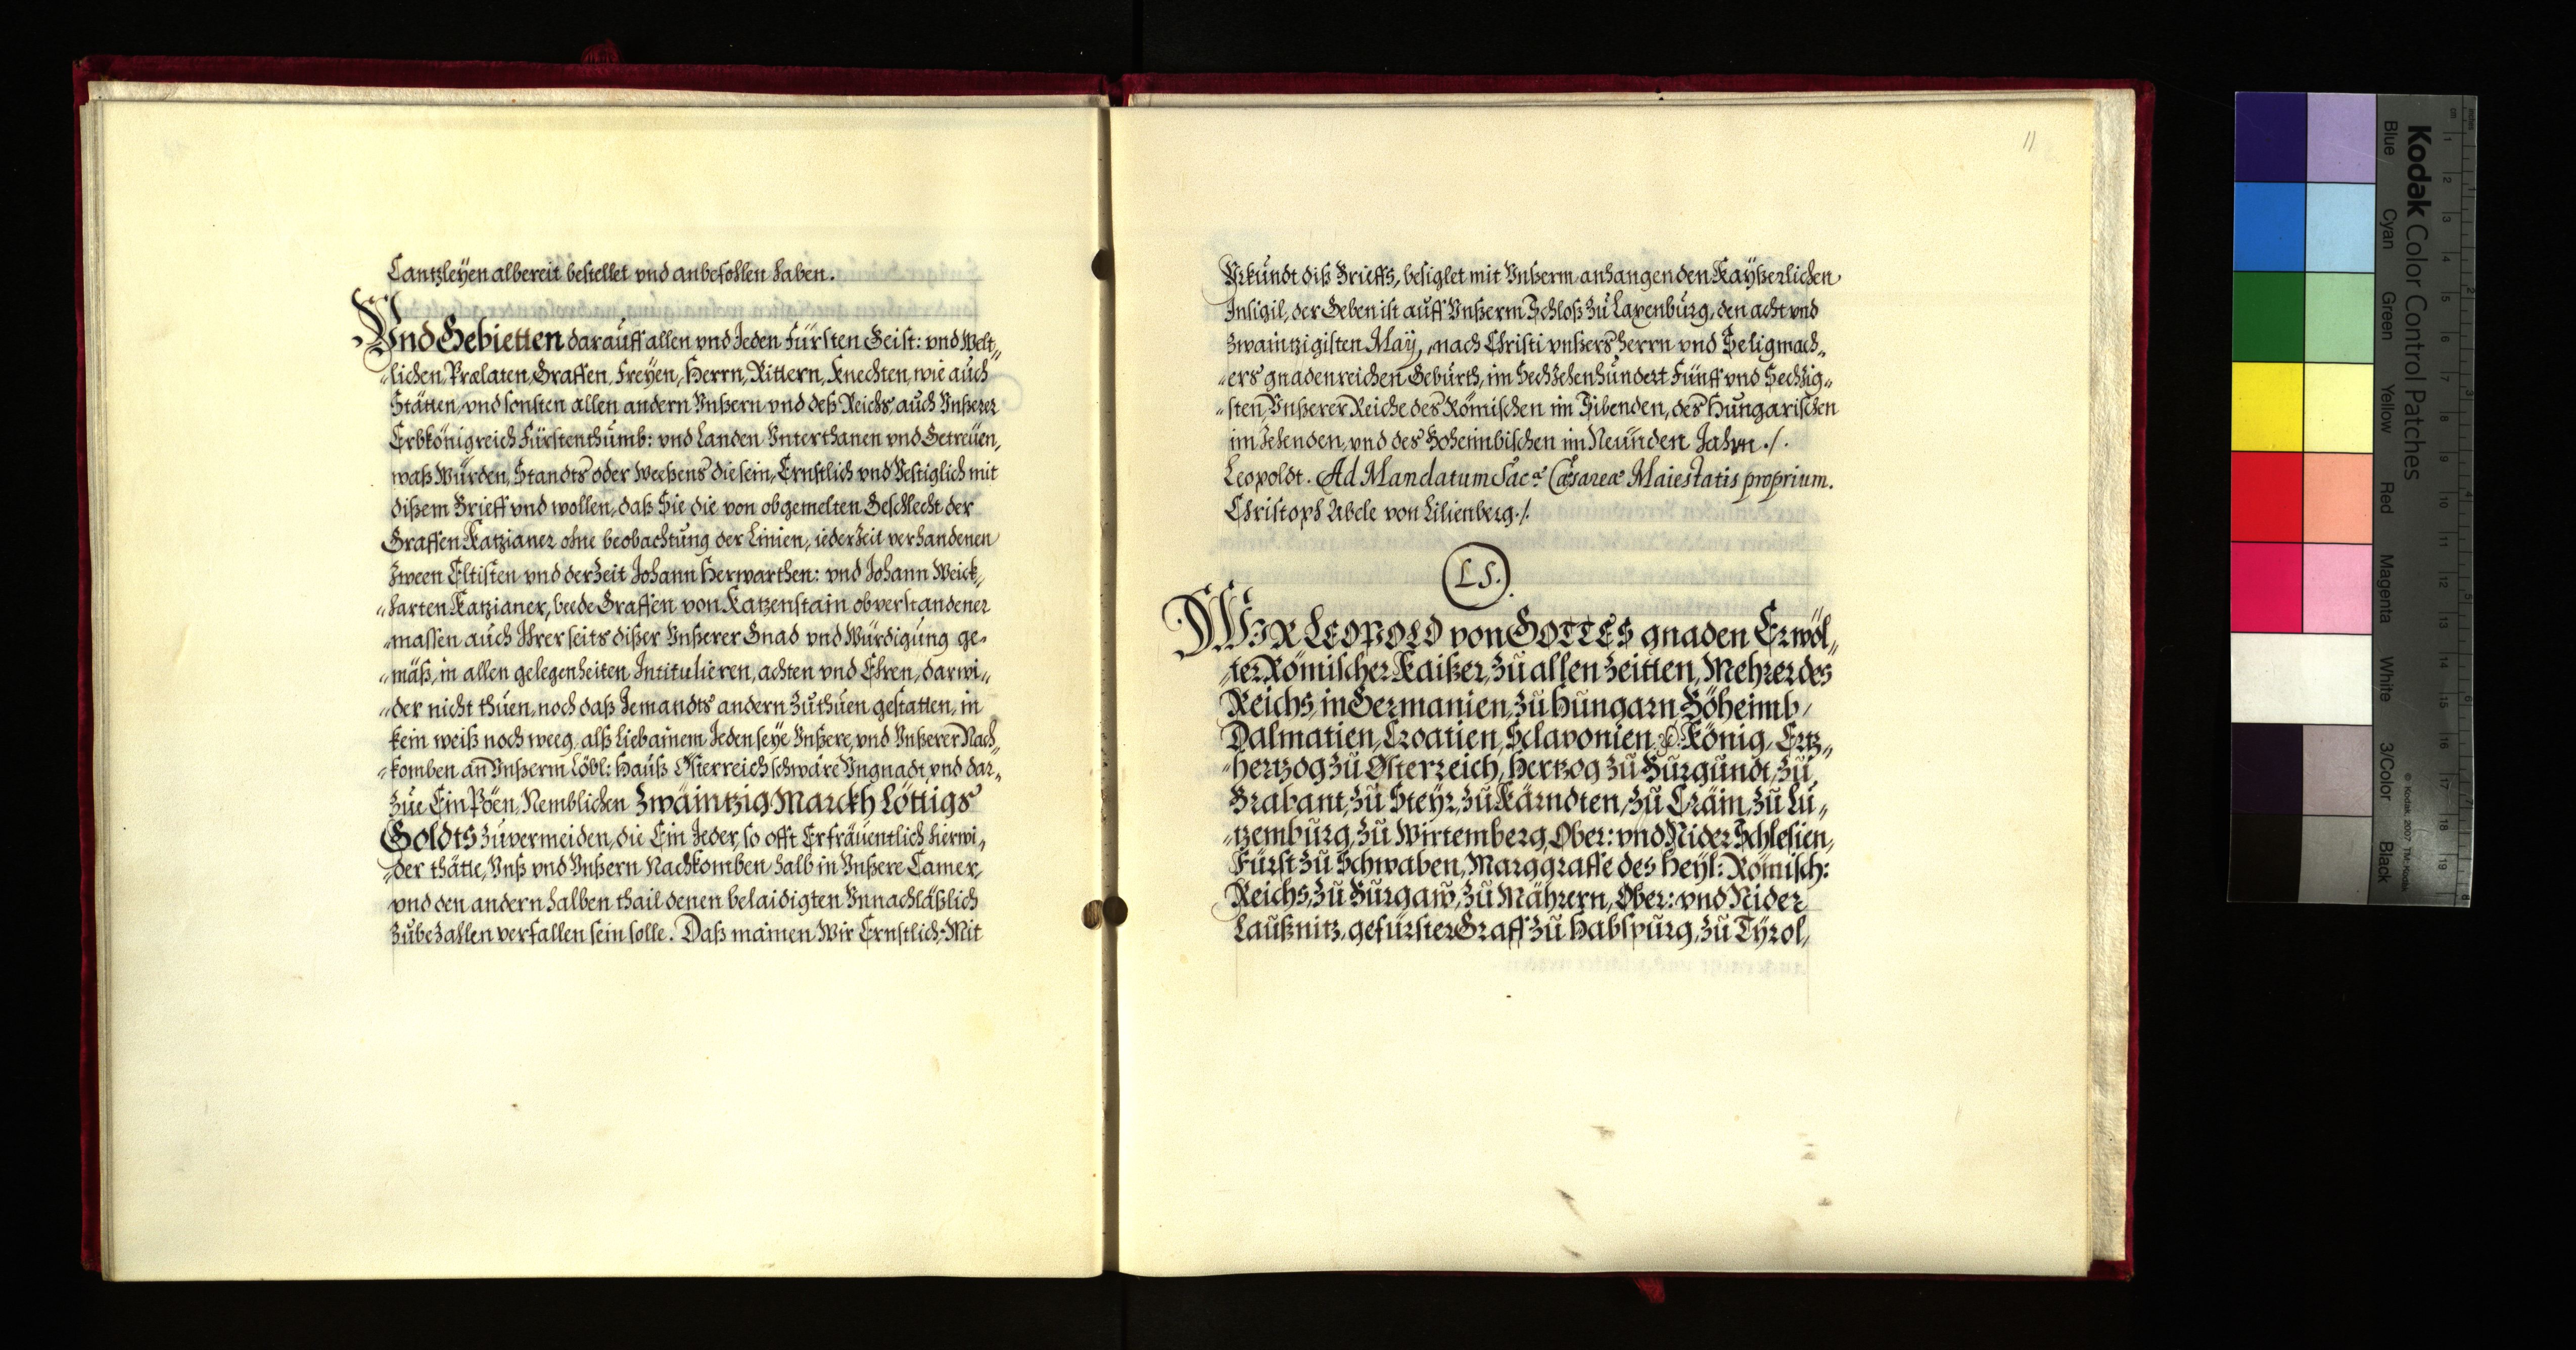 Cantzleÿen albereit bestellet vnd anbefohlen haben.
Vnd Gebietten darauff allen vnd Jeden Fürsten Geist: vnd Welt„
„lichen, Prælaten, Graffen, Freÿen, Herrn, Rittern, Knechten, wie auch
Stätten, vnd sonsten allen andern Vnßern vnd deß Reichs, auch Vnßerer
Erbkönigreich Fürstenthumb: vnd Landen Vnterthanen vnd Getreüen,
waß Würden, Standts oder Weeßens die sein, Ernstlich vnd Vestiglich mit
dißem Brieff vnd wollen, daß Sie die von obgemelten Geschlecht der
Graffen Katzianer ohne beobachtung der Linien, iederzeit verhandenen
Zween Eltisten vnd derzeit Johann Herwarthen: vnd Johann Weick„
„harten Katzianer, beede Graffen von Katzenstain obverstandener
„massen auch Ihrer seits dißer Vnßerer Gnad vnd Würdigung ge„
„mäß, in allen gelegenheiten Intitulieren, achten vnd Ehren, darwi„
„der nicht thuen, noch daß Jemandts andern zuthuen gestatten, in
kein weiß noch weeg, alß Lieb ainem Jeden seÿe Vnßere, vnd Vnßerer Nach„
„komben an Vnßerm Löbl: Hauß Österreich schwäre Vngnadt, vnd dar„
zue Ein Pöen, Nemblichen Zwäintzig Marckh Löttigs
Goldts zuvermeiden, die Ein Jeder, so offt Er fräuentlich hierwi„
„der thätte, Vnß vnd Vnßern Nachkomben halb in Vnßere Camer,
vnd den andern halben thail denen belaidigten Vnnachläßlich
zubezahlen verfallen sein solle. Daß mainen Wir Ernstlich, Mit
11
Vrkundt diß Brieffs, besiglet mit Vnßerm anhangenden Kaÿßerlichen
Insigil, der Geben ist auff Vnßerm Schloß zu Laxenburg, den acht vnd
zwaintzigisten Maÿ, nach Christi vnßers herrn vnd Seligmach„
„ers gnadenreichen Geburth, im Sechzehenhundert Fünff vnd Sechzig„
„sten, Vnßerer Reiche des Römischen im Sibenden, des Hungarischen
im Zehenden, vnd des Boheimbischen im Neunden Jahrn ./.
Leopoldt. Ad Mandatum Sac.æ Cæsareæ Maiestatis proprium.
Christoph Abele von Lilienberg ./.
L S.
WIR LEOPOLD von GOTTES gnaden Erwöl„
„ter Römischer Kaißer, zu allen Zeitten, Mehrer des
Reichs, in Germanien, zu Hungarn Böheimb,
Dalmatien, Croatien, Sclavonien &c. König, Ertz„
„hertzog zu Österreich, Hertzog zu Burgundt, zu
Brabant, zu Steÿr, zu Kärndten, zu Cräin, zu Lu„
„tzemburg, zu Wirtemberg, Ober: vnd Nider Schlesien,
Fürst zu Schwaben, Marggraffe des Heÿl: Römisch:
Reichs, zu Burgaw, zu Mährern, Ober: vnd Nider
Laußnitz, gefürster Graff zu Habspurg, zu Tÿrol,
Kodak Color Control Patches
Blue Cyan Green Yellow Red Magenta White 3/Color Black